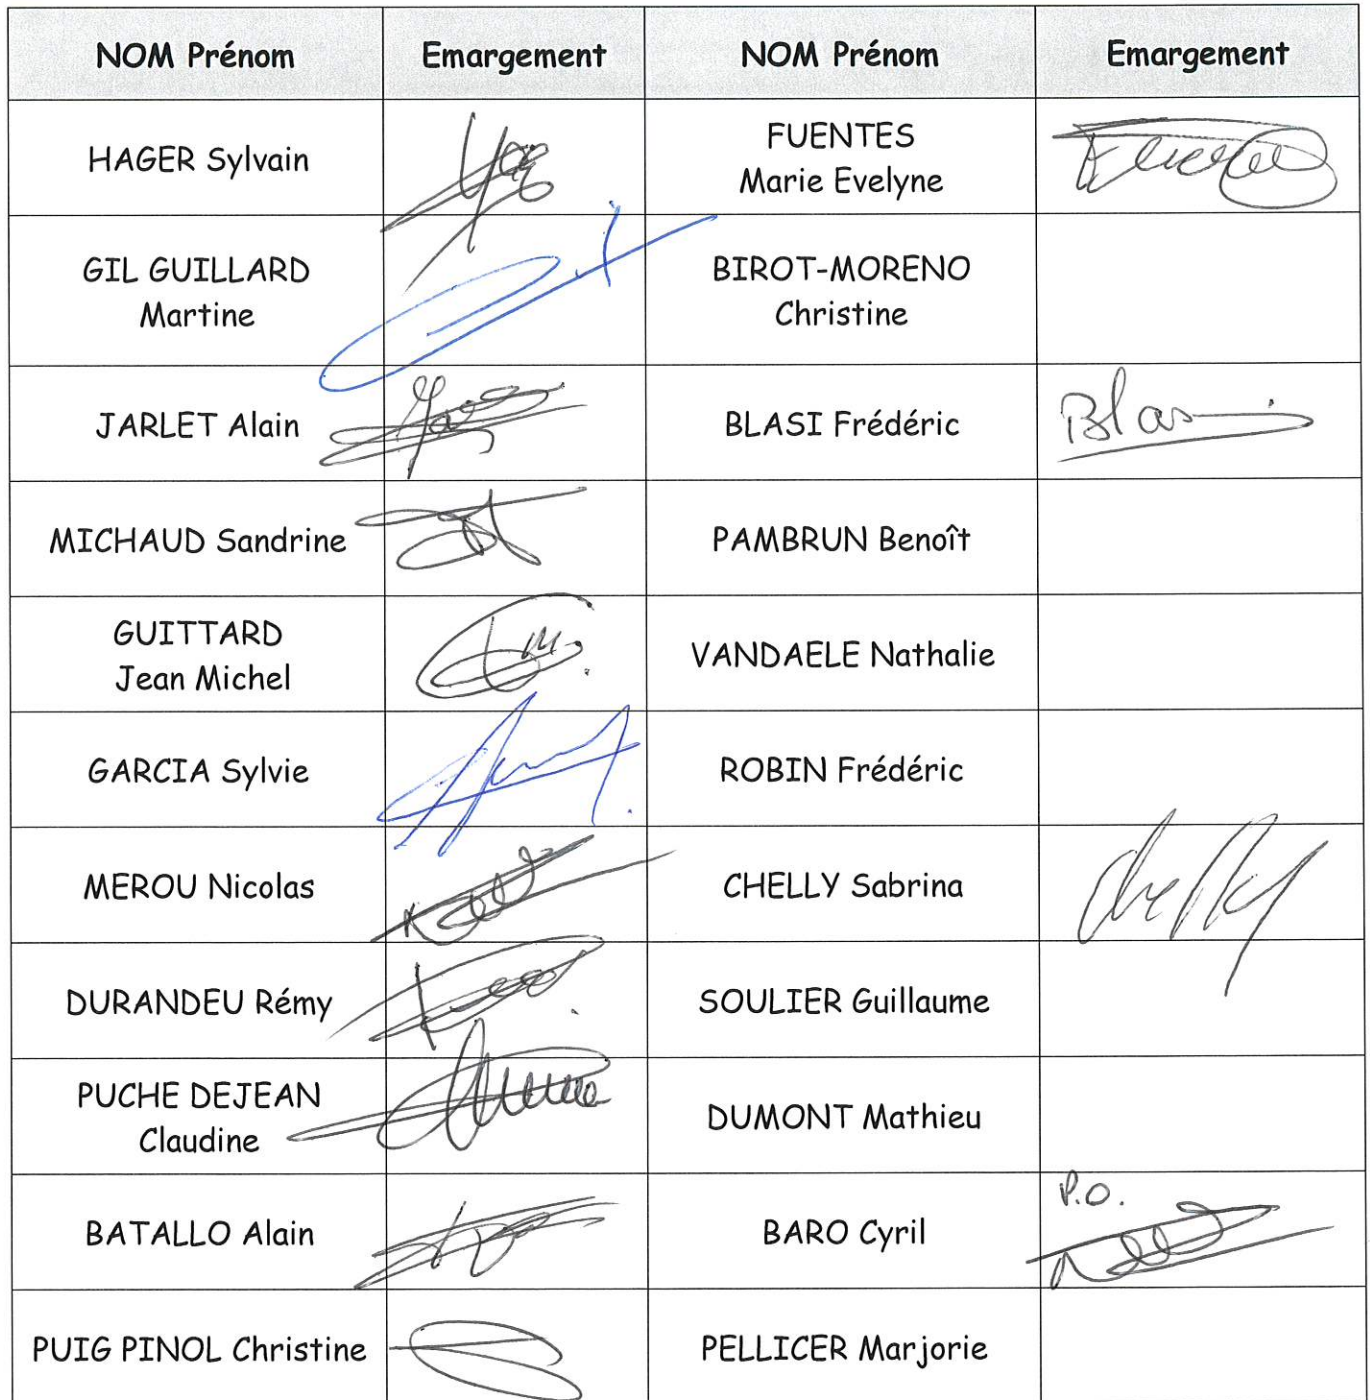 NOM Prénom Emargement NOM Prénom Emargement
HAGER Sylvain
FUENTES
Marie Evelyne
GIL GUILLARD
Martine
BIROT-MORENO
Christine
JARLET Alain
BLASI Frédéric
Blasi
MICHAUD Sandrine
PAMBRUN Benoît
GUITTARD
Jean Michel
VANDAELE Nathalie
GARCIA Sylvie
ROBIN Frédéric
MEROU Nicolas
CHELLY Sabrina
Chelly
DURANDEU Rémy
SOULIER Guillaume
PUCHE DEJEAN
Claudine
DUMONT Mathieu
BATALLO Alain
BARO Cyril
P.O.
PUIG PINOL Christine
PELLICER Marjorie